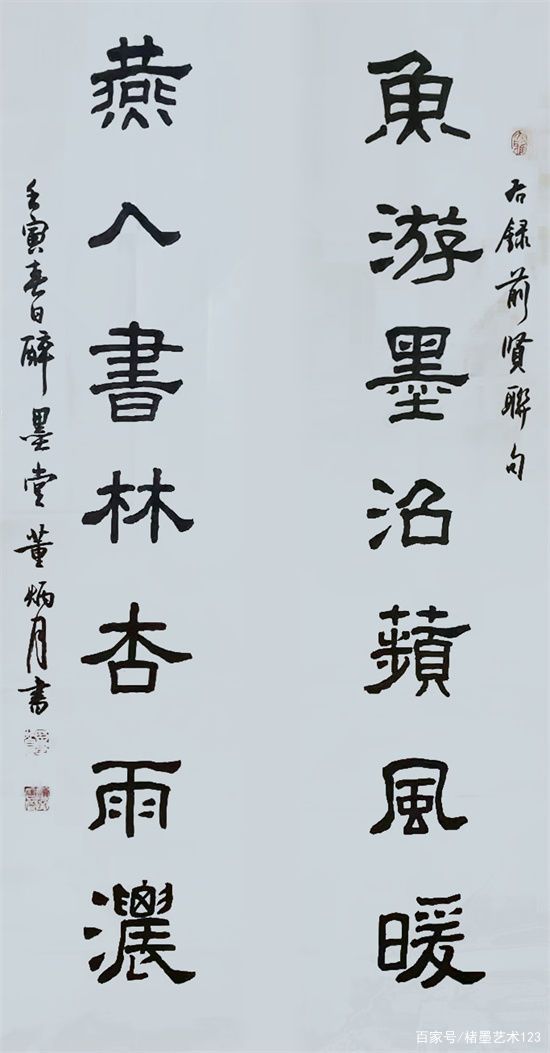 右録前賢聯句
魚游墨沼蘋風暖
燕入書林杏雨濃
壬寅春日醉墨堂董炳月書
百家号/楮墨艺术123